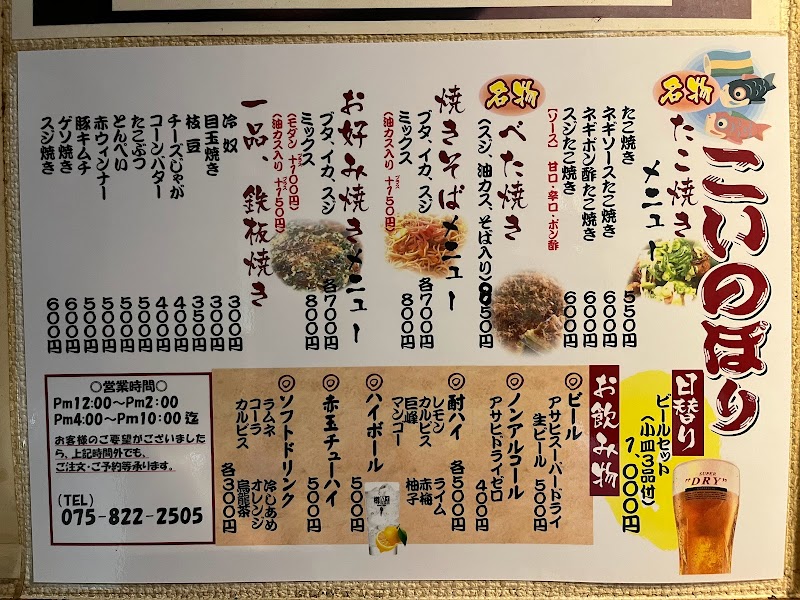 こいのぼり
名物
たこ焼き
メニュー
たこ焼き 550円
ネギソースたこ焼き 600円
ネギポン酢たこ焼き 600円
スジたこ焼き 600円
【ソース】 甘口・辛口・ポン酢
名物
べた焼き
(スジ、油カス、そば入り) 850円
焼きそばメニュー
ブタ、イカ、スジ 各700円
ミックス 800円
(油カス入り +プラス150円)
お好み焼きメニュー
ブタ、イカ、スジ 各700円
ミックス 800円
(モダン +プラス100円)
(油カス入り +プラス150円)
一品、鉄板焼き
冷奴 300円
目玉焼き 300円
枝豆 350円
チーズじゃが 400円
コーンバター 400円
たこぶつ 500円
とんぺい 500円
赤ウィンナー 500円
豚キムチ 500円
ゲソ焼き 600円
スジ焼き 600円
日替り
ビールセット
(小皿3品付)
1,000円
SUPER
"DRY"
お飲み物
◎ビール
アサヒスーパードライ
生ビール 500円
◎ノンアルコール
アサヒドライゼロ
400円
◎酎ハイ 各500円
レモン ライム
カルピス 赤梅
巨峰 柚子
マンゴー
◎ハイボール 500円
◎赤玉チューハイ
500円
◎ソフトドリンク
ラムネ 冷しあめ
コーラ オレンジ
カルピス 烏龍茶
各300円
○営業時間○
Pm12:00～Pm2:00
Pm4:00～Pm10:00 迄
お客様のご要望がございました
ら、上記時間外でも、
ご注文・ご予約等承ります。
(TEL)
075-822-2505